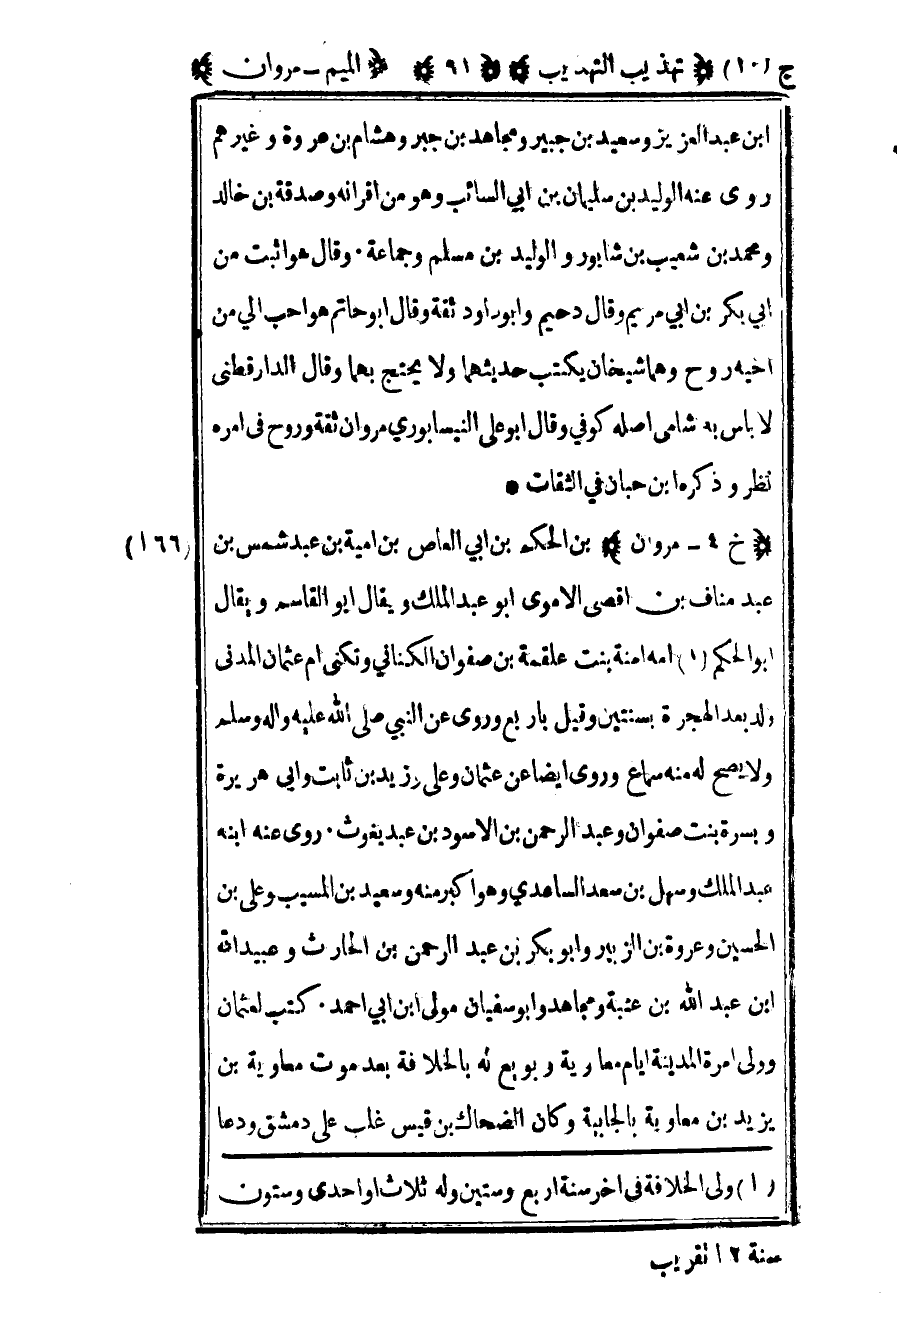 ج (١٠) ﴿ تهذيب التهذيب ﴾ ﴿ ٩١ ﴾ ﴿ الميم - مروان ﴾
ابن عبد العزيز وسعيد بن جبير ومجاهد بن جبر وهشام بن عروة وغيرهم
روى عنه الوليد بن سليمان بن ابي السائب وهو من اقرانه وصدقة بن خالد
ومحمد بن شعيب بن شابور والوليد بن مسلم وجماعة · وقال هو اثبت من
ابي بكر بن ابي مريم وقال دحيم وابوداود ثقة وقال ابو حاتم هو احب الي من
اخيه روح وهما شيخان يكتب حديثهما ولا يحتج بهما وقال الدارقطنى
لا باس به شامى اصله كوفي وقال ابو على النيسابوري مروان ثقة وروح فى امره
نظر و ذكره ابن حبان في الثقات ●
﴿ خ ٤ - مروان ﴾ بن الحكم بن ابي العاص بن امية بن عبد شمس بن (١٦٦)
عبد مناف بن اقصى الاموى ابو عبد الملك ويقال ابو القاسم ويقال
ابو الحكم (١) امه امنة بنت علقمة بن صفوان الكناني وتكنى ام عثمان المدنى
ولد بعد الهجرة بسنتين وقيل باربع وروى عن النبي صلى الله عليه واله وسلم
ولا يصح له منه سماع وروى ايضا عن عثمان وعلى وزيد بن ثابت وابي هريرة
وبسرة بنت صفوان وعبد الرحمن بن الاسود بن عبد يغوث · روى عنه ابنه
عبد الملك وسهل بن سعد الساعدي وهو اكبر منه وسعيد بن المسيب وعلى بن
الحسين وعروة بن الزبير وابو بكر بن عبد الرحمن بن الحارث وعبيد الله
ابن عبد الله بن عتبة ومجاهد وابو سفيان مولى ابن ابي احمد · كتب لعثمان
وولى امرة المدينة ايام معاوية وبويع له بالخلافة بعد موت معاوية بن
يزيد بن معاوية بالجابية وكان الضحاك بن قيس غلب على دمشق ودعا
(١) ولى الخلافة فى اخر سنة اربع وستين وله ثلاث او احدى وستون
سنة ١٢ تقريب